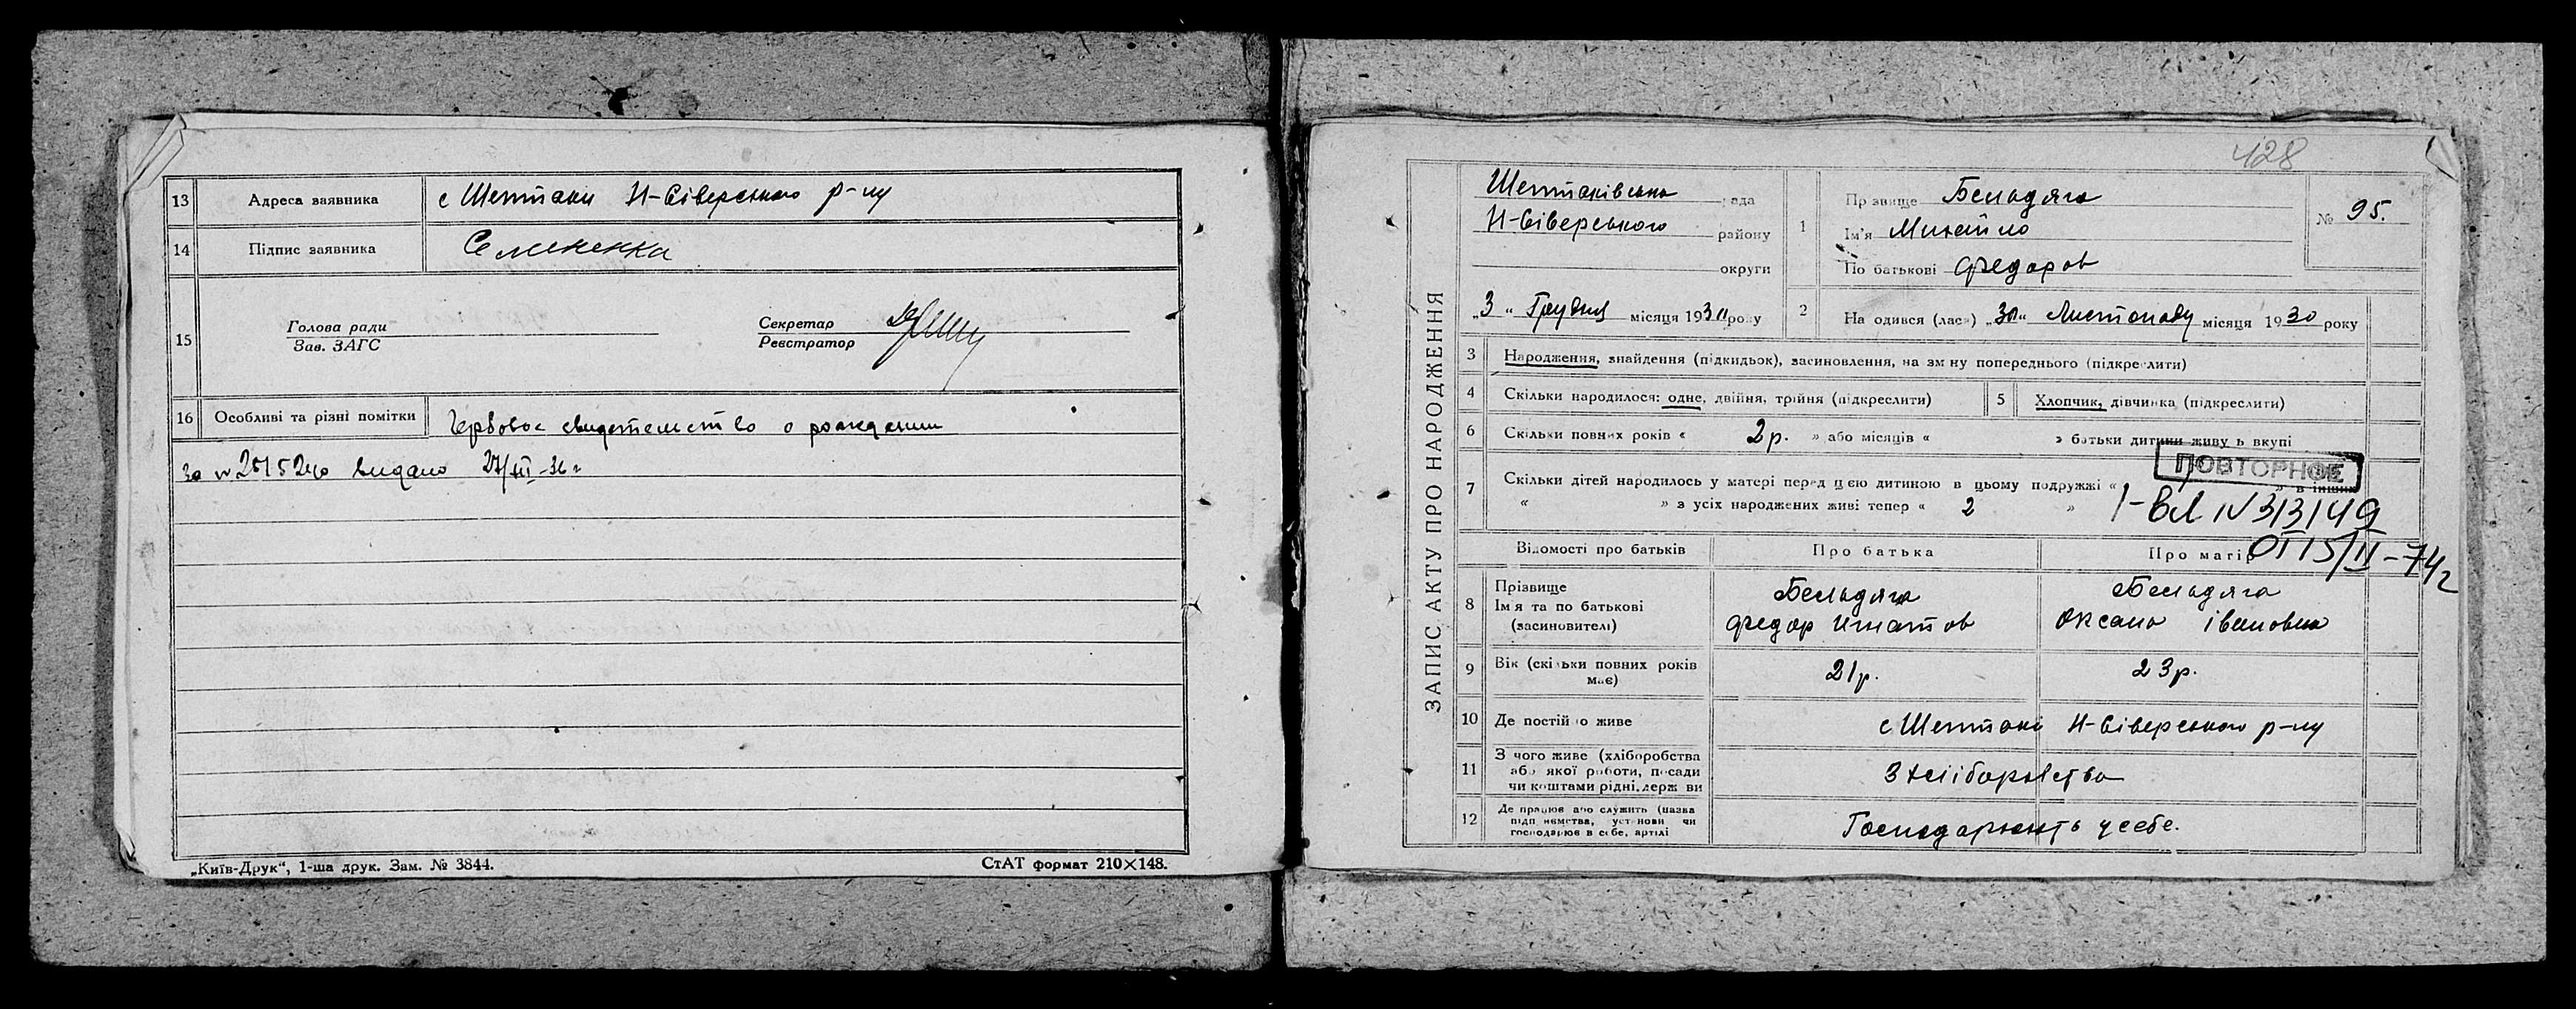 13 Адреса заявника с Шептаки Н-Сіверського р-ну
14 Підпис заявника Семененка
15 Голова ради
Зав. ЗАГС
Секретар
Реєстратор
16 Особливі та різні помітки Гербовое свидетельство о рождении
за № видано 27/XII-36 г
„Київ-Друк“, 1-ша друк. Зам. № 3844. СтАТ формат 210×148.
428
ЗАПИС АКТУ ПРО НАРОДЖЕННЯ
Шептаківська рада
Н-Сіверського району
округи
„3“ Грудня місяця 1930 року
1 Прізвище Бельдяга
Ім'я Михайло
По батькові Федоров
№ 95.
2 Народився (лася) „30“ Листопаду місяця 1930 року
3 Народження, знайдення (підкидьок), засиновлення, на зміну попереднього (підкреслити)
4 Скільки народилося: одне, двійня, трійня (підкреслити)
5 Хлопчик, дівчинка (підкреслити)
6 Скільки повних років « 2р. » або місяців « » батьки дитини живуть вкупі
ПОВТОРНОЕ
7 Скільки дітей народилось у матері перед цією дитиною в цьому подружжі « » в інших
« » з усіх народжених живі тепер « 2 »
I-ВЛ N 313149
ОТ 15/II-74г
Відомості про батьків Про батька Про матір
8 Прізвище
Ім'я та по батькові
(засиновителі)
Бельдяга
Федор Игнатов
Бельдяга
Оксана Івановна
9 Вік (скільки повних років має) 21р. 23р.
10 Де постійно живе с Шептаки Н-Сіверського р-ну
11 З чого живе (хліборобства
або якої роботи, посади
чи коштами рідні, держави
З хліборобства
12 Де працює або служить (назва
підприємства, установи чи
господарює в себе, артілі
Господарюють у себе.